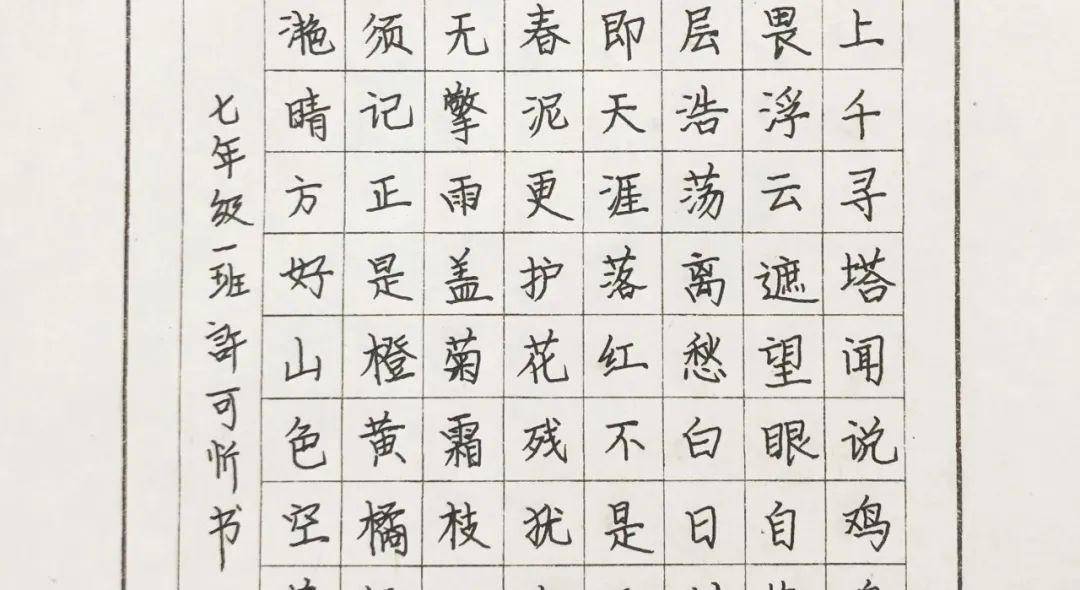 上千寻塔闻说鸡
畏浮云遮望眼自
层浩荡离愁白日
即天涯落红不是
春泥更护花残犹
无擎雨盖菊霜枝
须记正是橙黄橘
滟晴方好山色空
七年级一班許可忻书